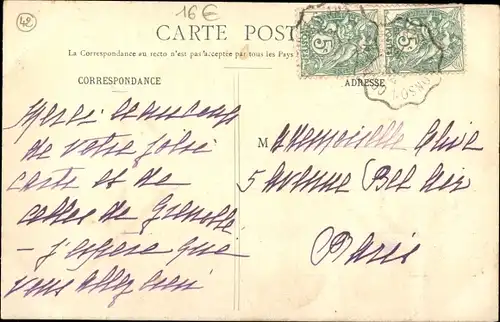 42
16€
CARTE POST
La Correspondance au recto n'est pas acceptée par tous les Pays
CORRESPONDANCE
ADRESSE
Merci beaucoup
de votre jolie
carte et de
celles de Grenoble
– j'espère que
vous allez bien
Mademoiselle Alice
5 Avenue Bel Air
Paris
5
5